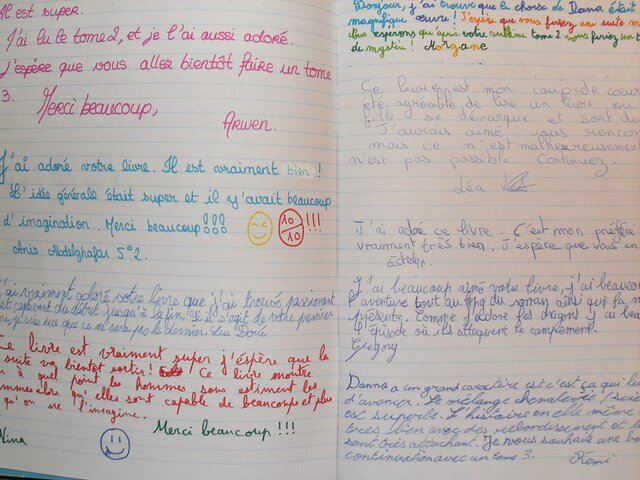 Il est super.
J'ai lu le tome 2, et je l'ai aussi adoré.
J'espère que vous allez bientôt faire un tome
3.
Merci beaucoup,
Arwen.
J'ai adoré votre livre. Il est vraiment bien !
L'idée générale était super et il y'avait beaucoup
d'imagination. Merci beaucoup !!!
10/10 !!!
Anis Abdelghafar 5°2.
j'ai vraiment adoré votre livre que j'ai trouvé passionant
et captivant du début jusqu'à la fin, s'il s'agit de votre premier
livre, je suis sur que ce ne sera pas le dernier. Luc Doré
Ce livre est vraiment super j'éspère que la
suite va bientôt sortir ! Ce livre montre
à quel point les hommes sous estiment les
femmes alors qu'elles sont capable de beaucoup et plus
qu'on ne l'imagine.
Merci beaucoup !!!
Nina
Bonjour, j'ai trouvé que la chose de Danna était
magnifique œuvre ! J'espère que vous fassiez une suite
Nous esperons qu'après votre sublime tome 2 vous fassiez un t
de mystère ! Morgane
Ce livre est mon coup de cœur
été agréable de lire un livre ou
fille se démarque et sont du
J'aurais aimé vous rencon
mais ce n'est malheureusement
n'est pas possible. Continuez.
Léa
J'ai adoré ce livre. C'est mon préféré
vraiment très bien. J'espère que vous en
Esteban.
J'ai beaucoup aimé votre livre, j'ai beaucou
l'aventure tout au long du roman ainsi que la
présente. Comme j'adore les dragons j'ai bea
l'épisode où ils attaquent le campement.
Grégory
Danna a un grand caractère est c'est ça qui l
d'avancer. Le mélange chevalerie / scie
est superbe. L'histoire en elle même
très bien avec des rebordissement et l
sont très attachant. Je vous souhaite une bo
continuation avec un tome 3. Rémi